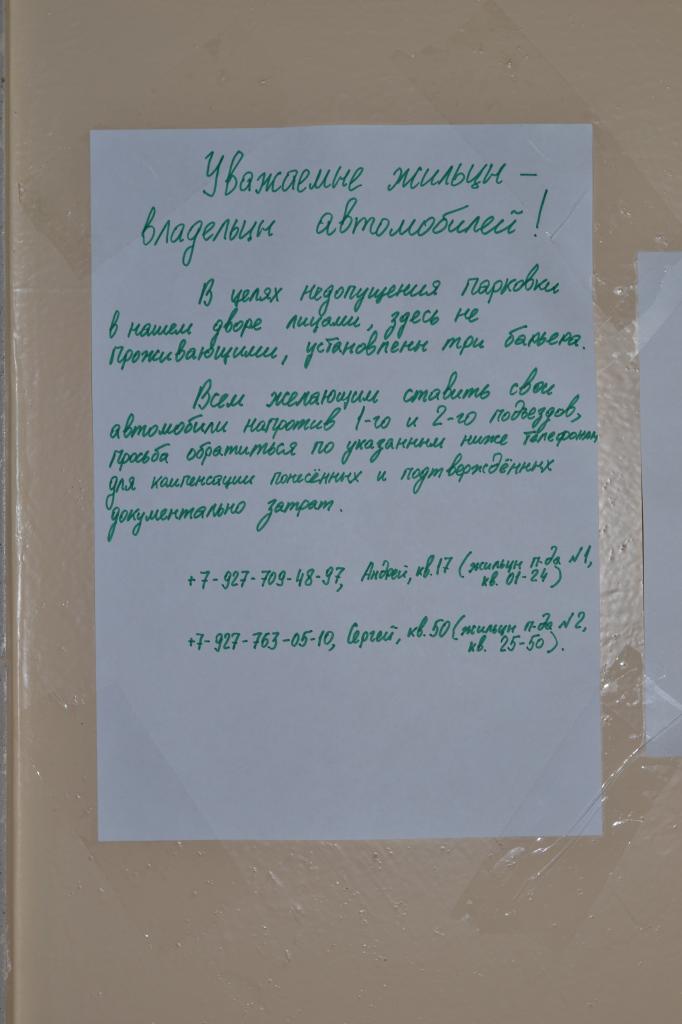 Уважаемые жильцы –
владельцы автомобилей!
В целях недопущения парковки
в нашем дворе лицами, здесь не
проживающими, установлены три барьера.
Всем желающим ставить свои
автомобили напротив 1-го и 2-го подъездов,
просьба обратиться по указанным ниже телефонам
для компенсации понесённых и подтверждённых
документально затрат.
+7-927-709-48-97, Андрей, кв.17 (жильцы п-да №1,
кв. 01-24)
+7-927-763-05-10, Сергей, кв.50 (жильцы п-да №2,
кв. 25-50).